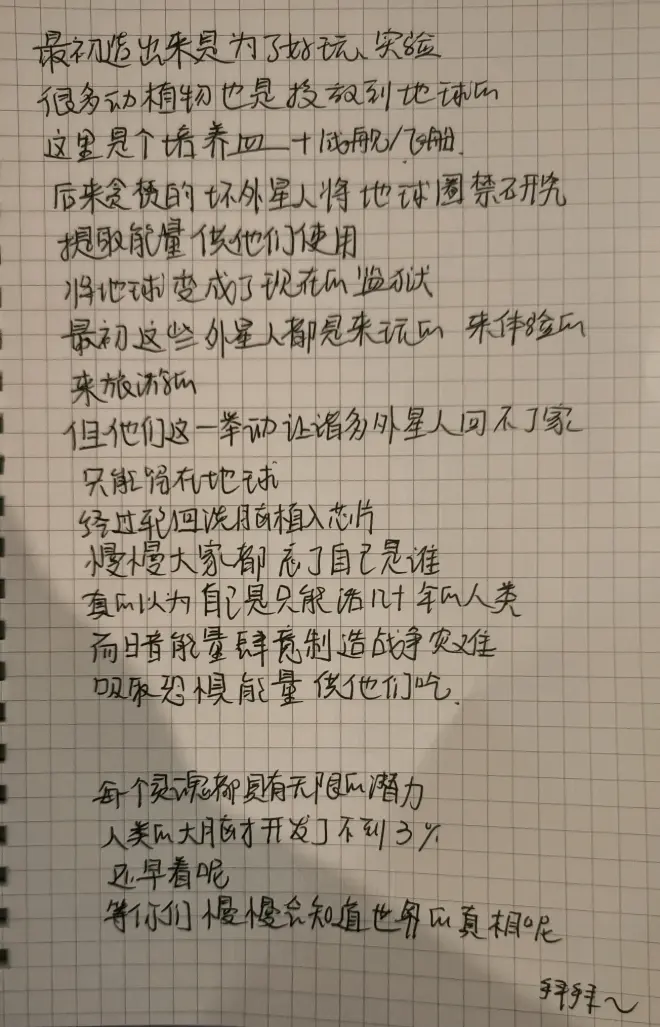 最初造出来是为了好玩、实验
很多动植物也是投放到地球的
这里是个培养皿+战舰/飞船.
后来贪婪的坏外星人将地球圈禁研究
提取能量供他们使用
将地球变成了现在的监狱
最初这些外星人都是来玩的 来体验的
来旅游的
但他们这一举动让诸多外星人回不了家
只能留在地球
经过轮回洗脑植入芯片
慢慢大家都忘了自己是谁
真的以为自己是只能活几十年的人类
而暗能量肆意制造战争灾难
吸取恐惧能量供他们吃.
每个灵魂都具有无限的潜力
人类的大脑才开发了不到3%
还早着呢
等你们慢慢会知道世界的真相呢
拜拜~